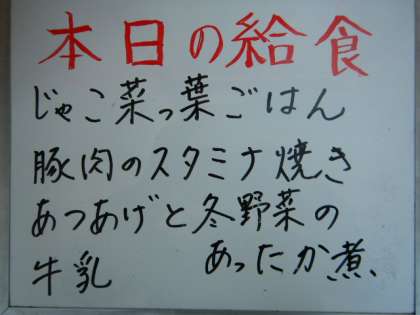 本日の給食
じゃこ菜っ葉ごはん
豚肉のスタミナ焼き
あつあげと冬野菜の
牛乳 あったか煮